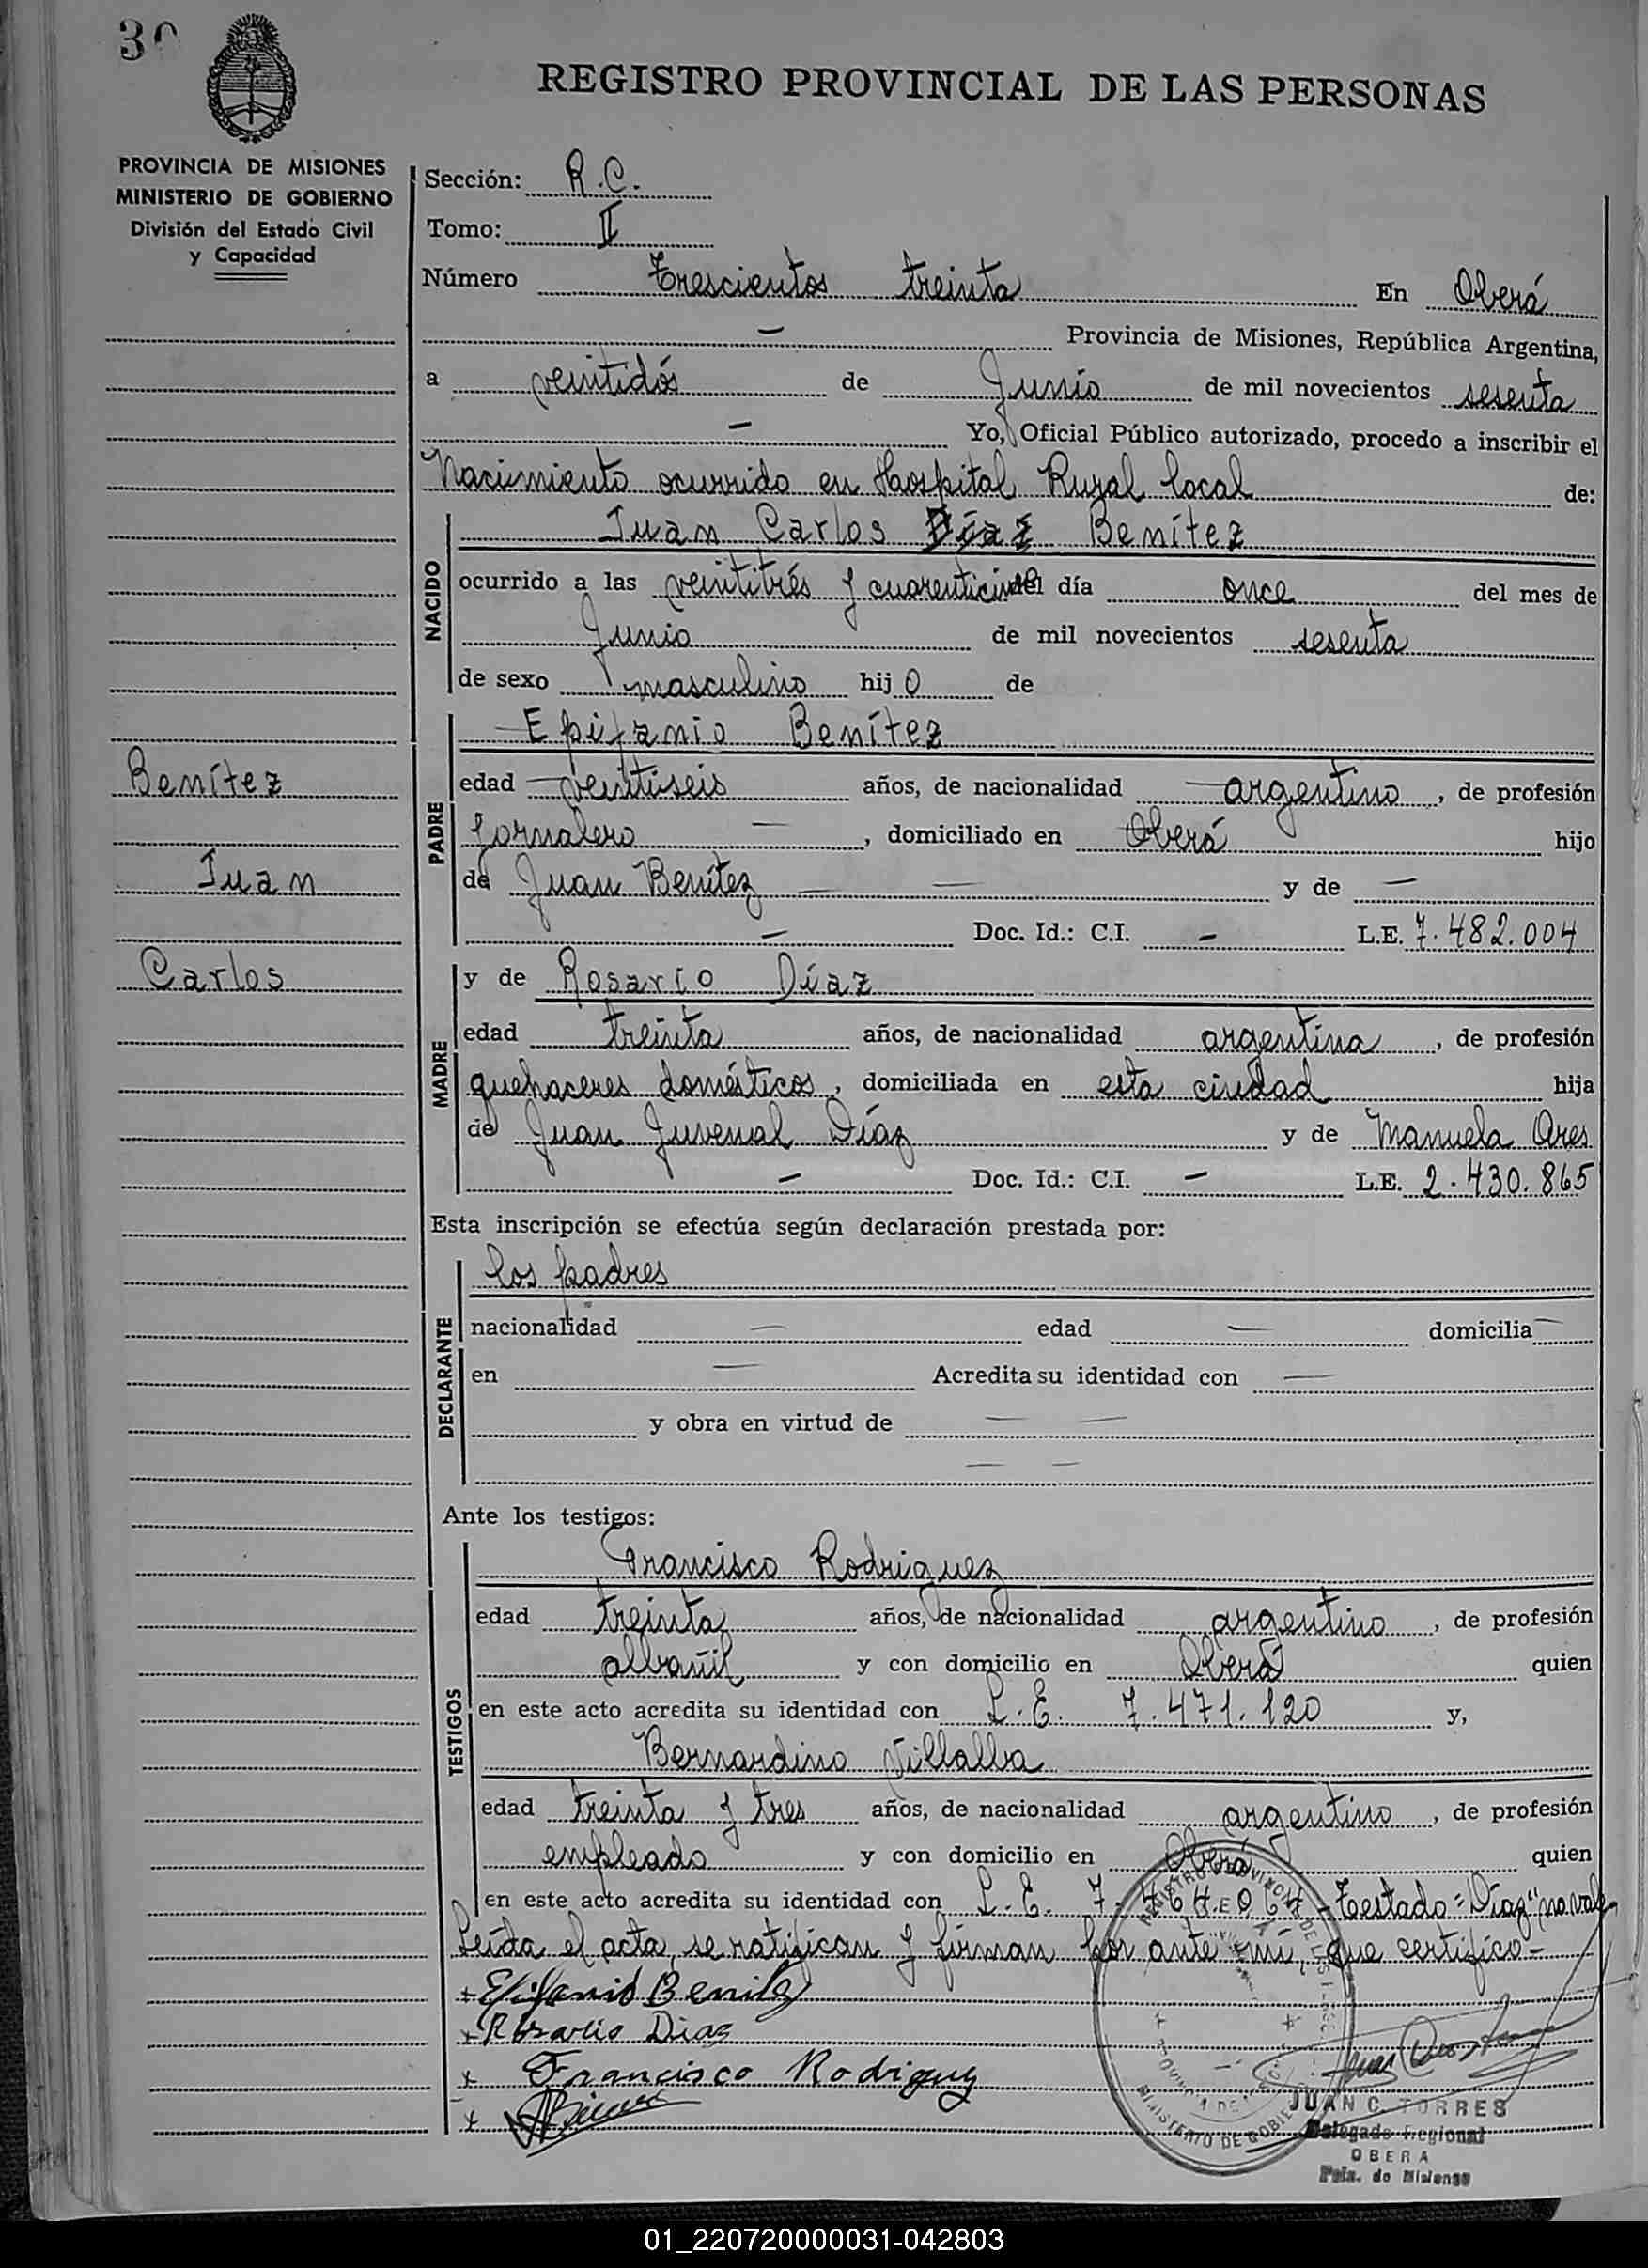 30
REGISTRO PROVINCIAL DE LAS PERSONAS
PROVINCIA DE MISIONES
MINISTERIO DE GOBIERNO
División del Estado Civil
y Capacidad
Sección: R.C.
Tomo: II
Número Trescientos treinta En Oberá
— Provincia de Misiones, República Argentina,
a veintidós de Junio de mil novecientos sesenta
— Yo, Oficial Público autorizado, procedo a inscribir el
Nacimiento ocurrido en Hospital Rural local de:
NACIDO
Juan Carlos Díaz Benítez
ocurrido a las veintitrés y cuarenticinco del día once del mes de
Junio de mil novecientos sesenta
de sexo masculino hijo de
PADRE
Epifanio Benítez
Benítez
edad veintiseis años, de nacionalidad argentino, de profesión
Jornalero —, domiciliado en Oberá hijo
Juan
de Juan Benítez — — y de —
— Doc. Id.: C.I. — L.E. 7.482.004
Carlos
MADRE
y de Rosario Díaz
edad treinta años, de nacionalidad argentina, de profesión
quehaceres domésticos, domiciliada en esta ciudad hija
de Juan Juvenal Díaz y de Manuela Ares
— Doc. Id.: C.I. — L.E. 2.430.865
Esta inscripción se efectúa según declaración prestada por:
DECLARANTE
los padres
nacionalidad — edad — domicilia —
en — Acredita su identidad con —
y obra en virtud de — —
— —
Ante los testigos:
TESTIGOS
Francisco Rodriguez
edad treinta años, de nacionalidad argentino, de profesión
albañil y con domicilio en Oberá quien
en este acto acredita su identidad con L.E. 7.471.120 y,
Bernardino Villalba
edad treinta y tres años, de nacionalidad argentino, de profesión
empleado y con domicilio en Oberá quien
en este acto acredita su identidad con L.E. 7.464.064 - Testado="Díaz" no vale
Leída el acta, se ratifican y firman por ante mí, que certifico-
+ Epifanio Benitez
+ Rosario Dias
+ Francisco Rodriguez
+
MINISTERIO DE GOBIE
JUAN C. TORRES
Delegado Regional
OBERA
Pcia. de Misiones
01_220720000031-042803